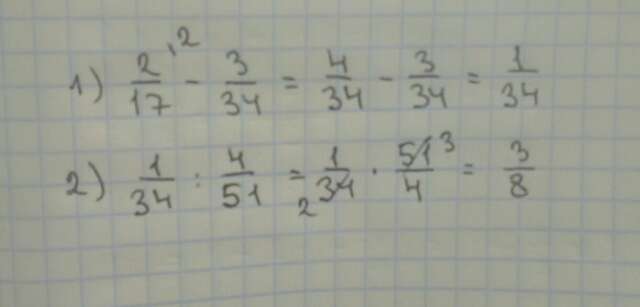 1) 2/17 ,2 - 3/34 = 4/34 - 3/34 = 1/34
2) 1/34 : 4/51 = 1/34 2 · 51 3/4 = 3/8